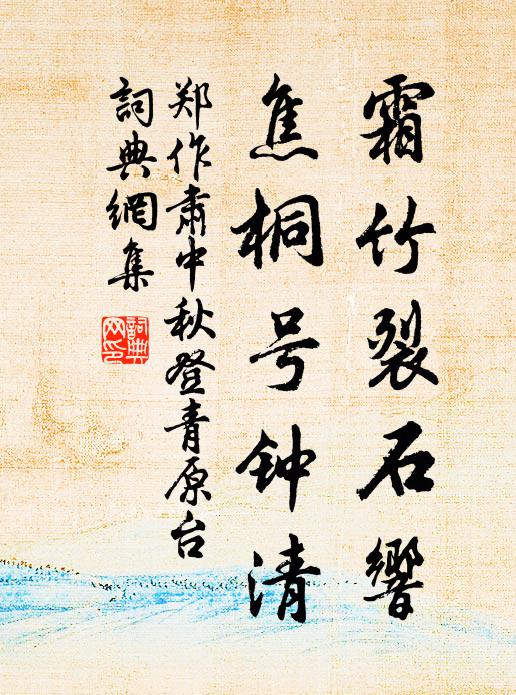 霜竹裂石響
焦桐号钟清
郑作肃中秋登青原台
詞典網集
詞典网印